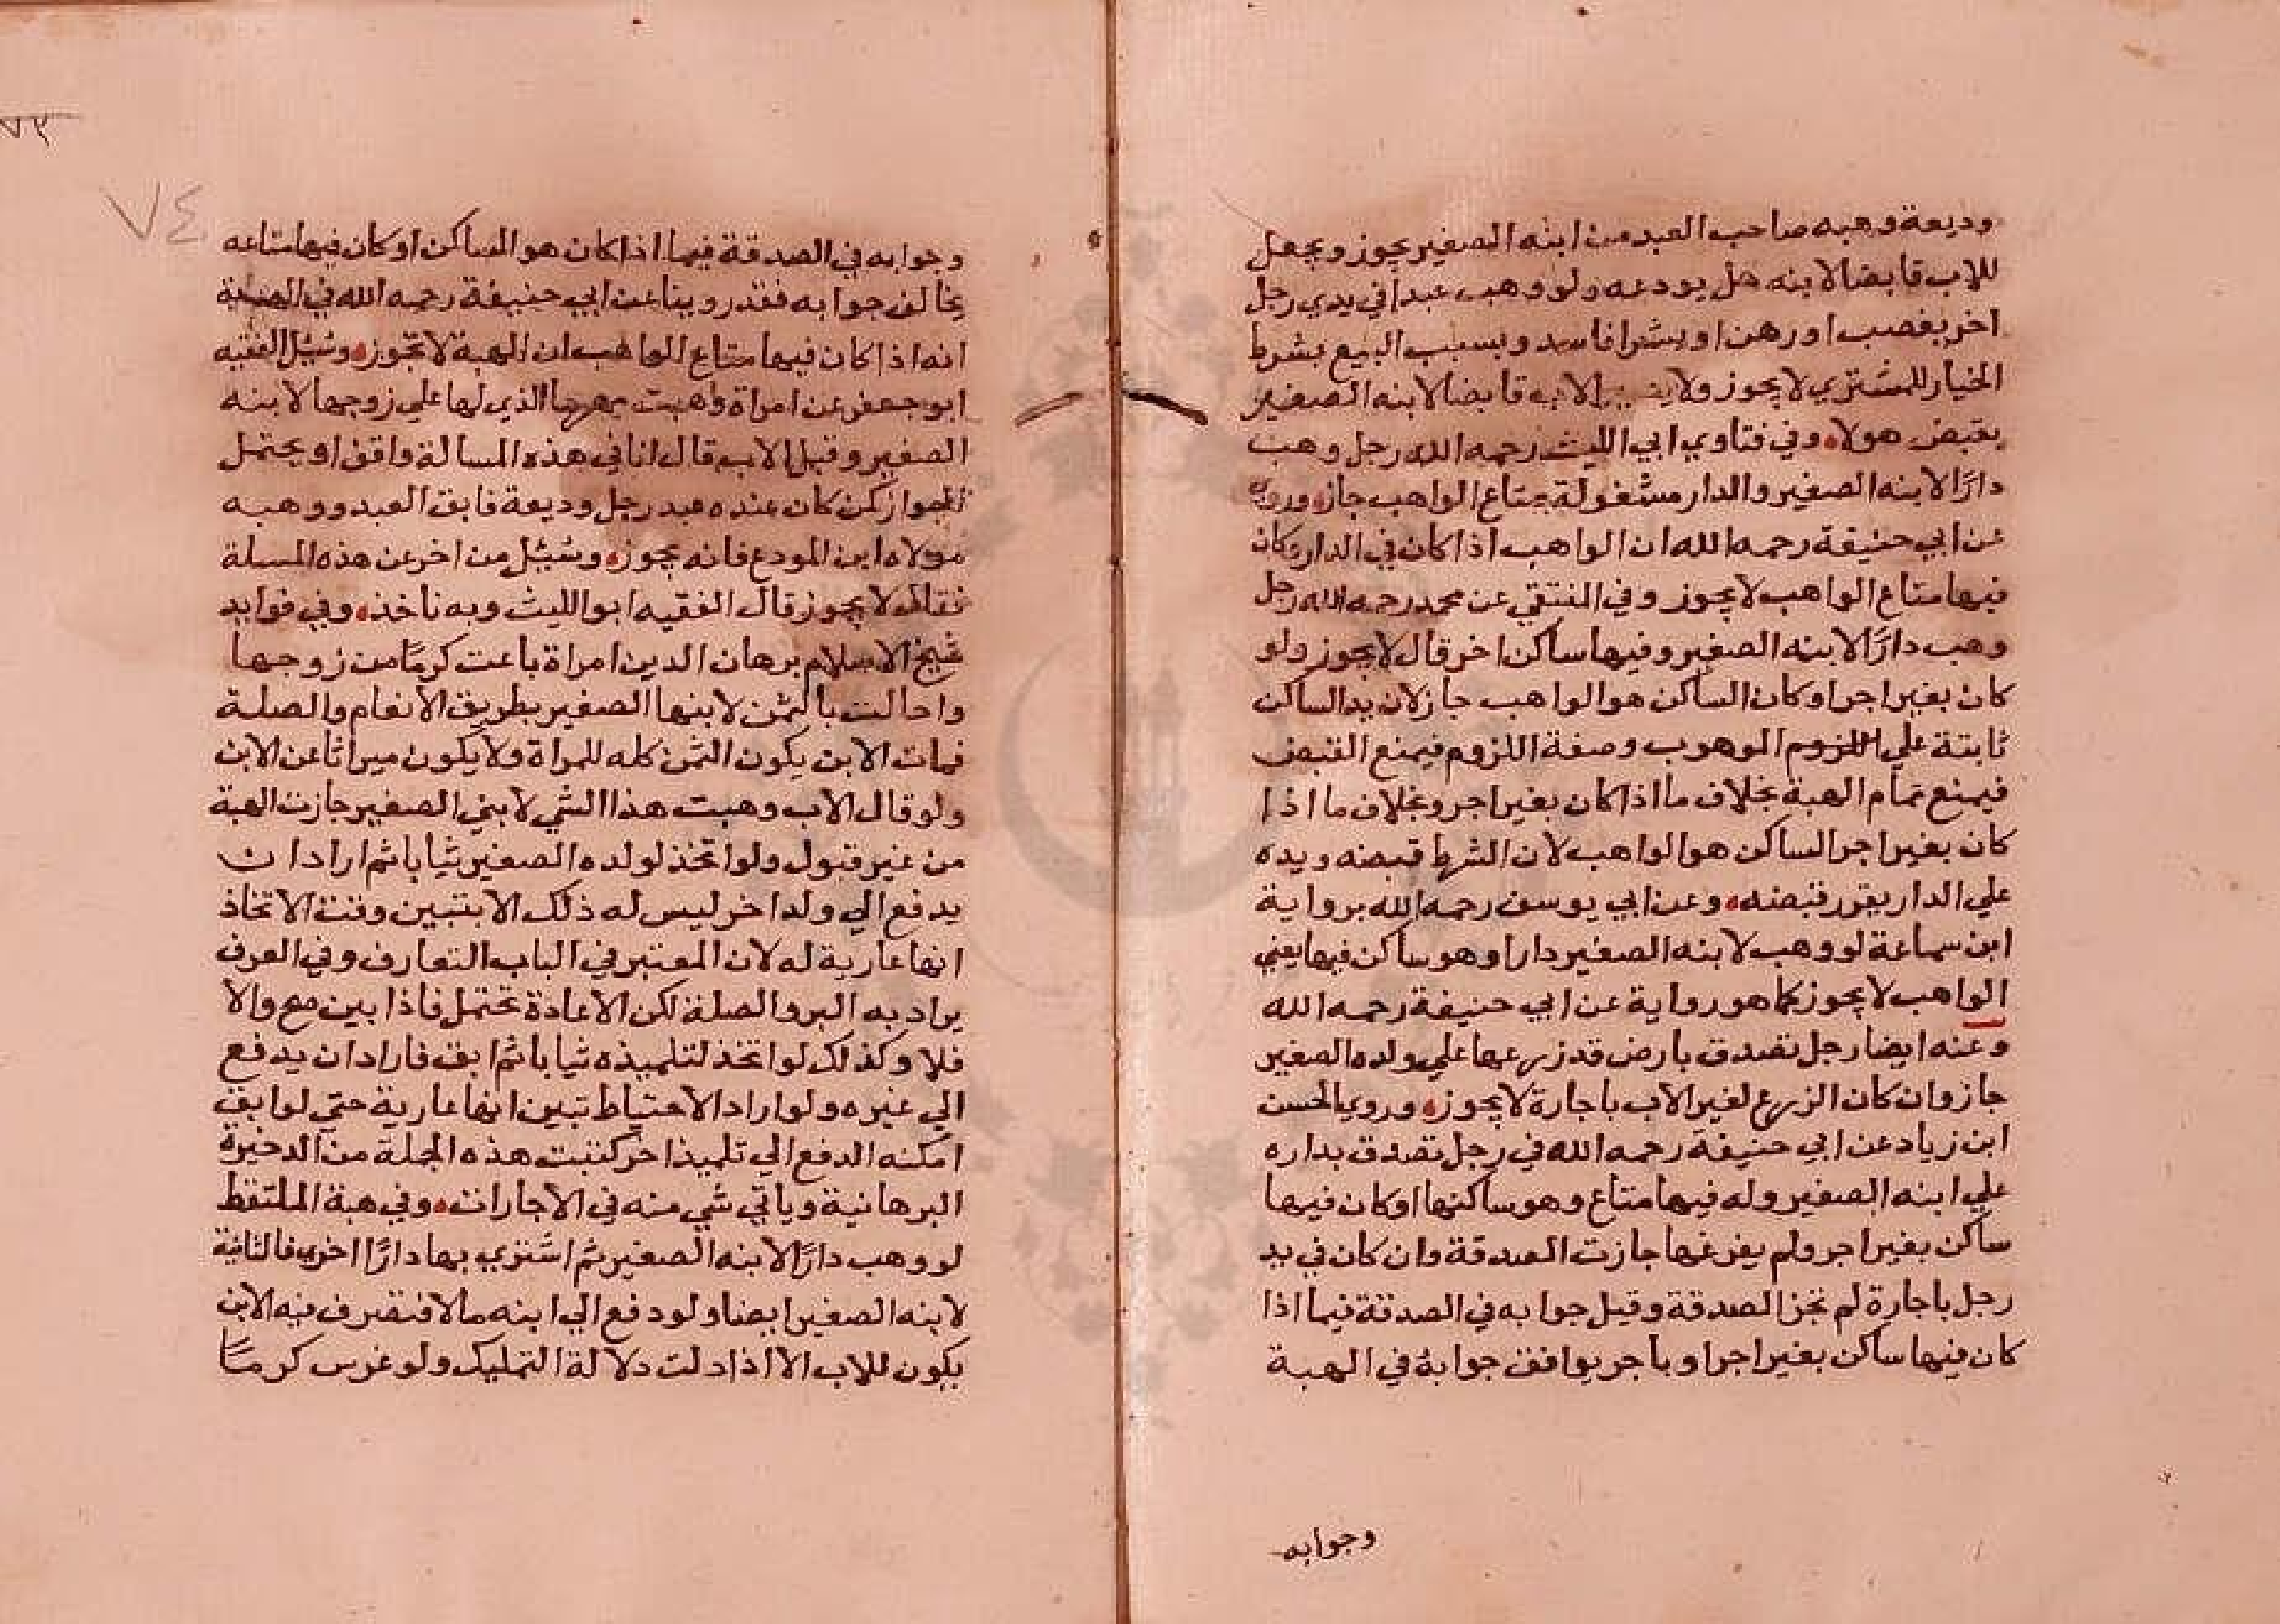 وديعة وهبه صاحب العبد من ابنه الصغير يجوز ويجعل
للاب قابضا لابنه هل يودعه ولو وهب عبدا في يدي رجل
اخر بغصب او رهن او بشرا فاسد وبسبب البيع بشرط
الخيار للمشتري لا يجوز ولا يصير الاب قابضا لابنه الصغير
بقبض هولاء وفي فتاوي ابي الليث رحمه الله رجل وهب
دارًا لابنه الصغير والدار مشغولة بمتاع الواهب جاز وروي
عن ابي حنيفة رحمه الله ان الواهب اذا كان في الدار وكان
فيها متاع الواهب لا يجوز وفي المنتقي عن محمد رحمه الله رجل
وهب دارًا لابنه الصغير وفيها ساكن اخر قال لا يجوز ولو
كان بغير اجر او كان الساكن هو الواهب جاز لان يد الساكن
ثابتة علي اللزوم الموهوب وصفة اللزوم فيمنع القبض
فيمنع تمام الهبة بخلاف ما اذا كان بغير اجر وبخلاف ما اذا
كان بغير اجر الساكن هو الواهب لان الشرط قبضه ويده
علي الدار يقرر قبضه وعن ابي يوسف رحمه الله برواية
ابن سماعة لو وهب لابنه الصغير دارا وهو ساكن فيها يعني
الواهب لا يجوز كما هو رواية عن ابي حنيفة رحمه الله
وعنه ايضا رجل تصدق بارض قد زرعها علي ولده الصغير
جاز وان كان الزرع لغير الاب باجارة لا يجوز وروي الحسن
ابن زياد عن ابي حنيفة رحمه الله في رجل تصدق بداره
علي ابنه الصغير وله فيها متاع وهو ساكنها او كان فيها
ساكن بغير اجر ولم يفرغها جازت الصدقة وان كان في يد
رجل باجارة لم تجز الصدقة وقيل جوابه في الصدقة فيما اذا
كان فيها ساكن بغير اجر او باجر يوافق جوابه في الهبة
وجوابه
٧٣
٧٤
وجوابه في الصدقة فيما اذا كان هو الساكن او كان فيها متاعه
يخالف جوابه فقد روينا عن ابي حنيفة رحمه الله في الهبة
انه اذا كان فيها متاع الواهب ان الهبة لا تجوز وسئل الفقيه
ابو جعفر عن امراة وهبت مهرها الذي لها علي زوجها لابنه
الصغير وقبل الاب قال انا في هذه المسالة واقف او يحتمل
الجواز كمن كان عنده عبد رجل وديعة فابق العبد ووهبه
مولاه ابن المودع فانه يجوز وسئل من اخر عن هذه المسلة
فقال لا يجوز قال الفقيه ابو الليث وبه ناخذ وفي فوايد
شيخ الاسلام برهان الدين امراة باعت كرمًا من زوجها
واحالت بالثمن لابنها الصغير بطريق الانعام والصلة
فمات الابن يكون الثمن كله للمراة ولا يكون ميراثا عن الابن
ولو قال الاب وهبت هذا الشي لابني الصغير جازت الهبة
من غير قبول ولو اتخذ لولده الصغير ثيابا ثم اراد ان
يدفع الي ولد اخر ليس له ذلك الا بتبيين وقت الاتخاذ
انها عارية له لان المعتبر في الباب التعارف وفي العرف
يراد به البر والصلة لكن الاعادة تحتمل فاذا بين صح والا
فلا وكذلك لو اتخذ لتلميذه ثيابا ثم ابق فاراد ان يدفع
الي غيره ولو اراد الاحتياط تبين انها عارية حتي لو ابق
امكنه الدفع الي تلميذ اخر كتبت هذه الجملة من الدخيرة
البرهانية وياتي شي منه في الاجارات وفي هبة الملتقط
لو وهب دارًا لابنه الصغير ثم اشتري بها دارًا اخري فالثانية
لابنه الصغير ايضا ولو دفع الي ابنه مالا فتصرف فيه الابن
يكون للاب الا اذا دلت دلالة التمليك ولو غرس كرمًا